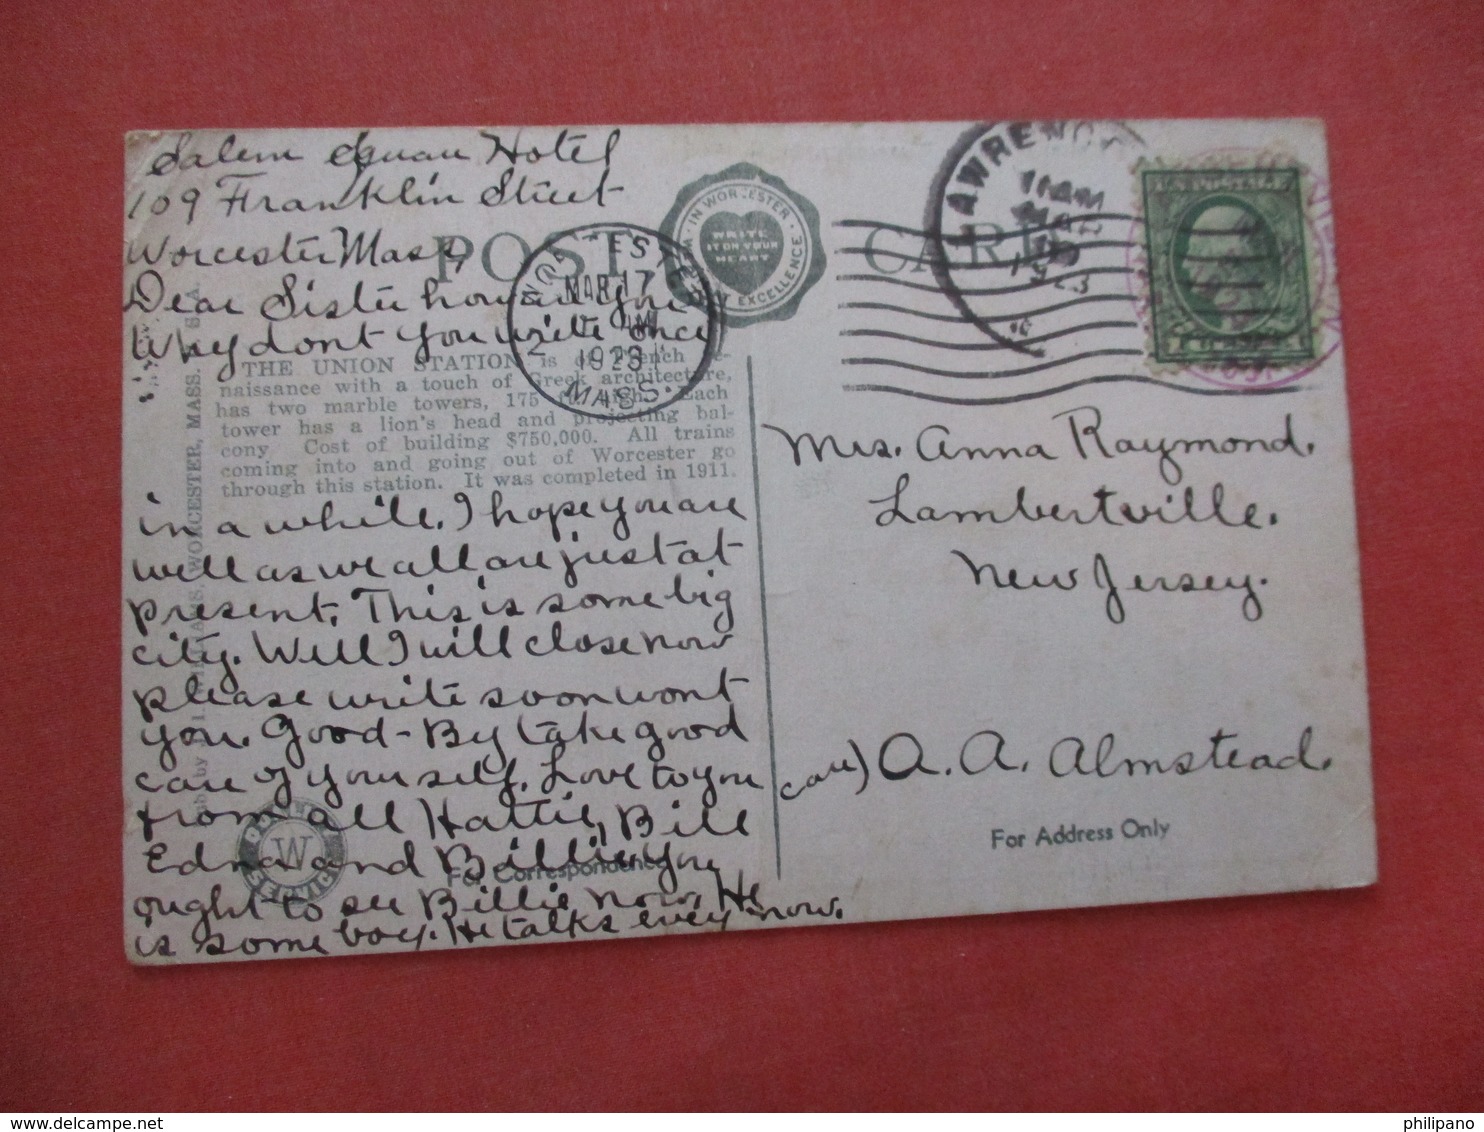 Salem Squar Hotel
109 Franklin Street
Worcester Mass,
Dear Sister how are you
Why dont you write once
in a while. I hope you are
well as we all are just at
present. This is some big
city. Well I will close now
please write soon wont
you. Good-By take good
care of yourself. Love to you
from all Hattie, Bill
Edna and Billie. You
ought to see Billie now. He
is some boy. He talks every now.
POST CARD
IN WORCESTER
WRITE
IT ON YOUR
HEART
EXCELLENCE
WORCESTER
MAR 17
1923
MASS.
LAWRENCE
11 AM
MAR
THE UNION STATION is of French Re-
naissance with a touch of Greek architecture,
has two marble towers, 175 feet high. Each
tower has a lion's head and projecting bal-
cony Cost of building $750,000. All trains
coming into and going out of Worcester go
through this station. It was completed in 1911.
WORCESTER, MASS.
Mrs. Anna Raymond.
Lambertville.
New Jersey.
care) A. A. Almstead.
For Address Only
For Correspondence
W
delcampe.net
philipano